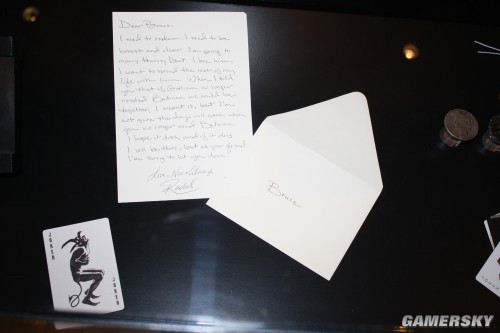 Dear Bruce.
I need to I need to be
honest and clear. I'm going to
marry Harvey Dent. I love him
I want to spend the rest of my
life with him. When I told
you that if Gotham no longer
needed Batman we could be
together, I meant it, but I'm
not sure the day will come when
you no longer need Batman.
I hope it does, and if it does
I will be there, but as your friend
I'm sorry to let you down.
Love, Now & Always
Rachel
Bruce
JOKER
JOKER
GAMERSKY